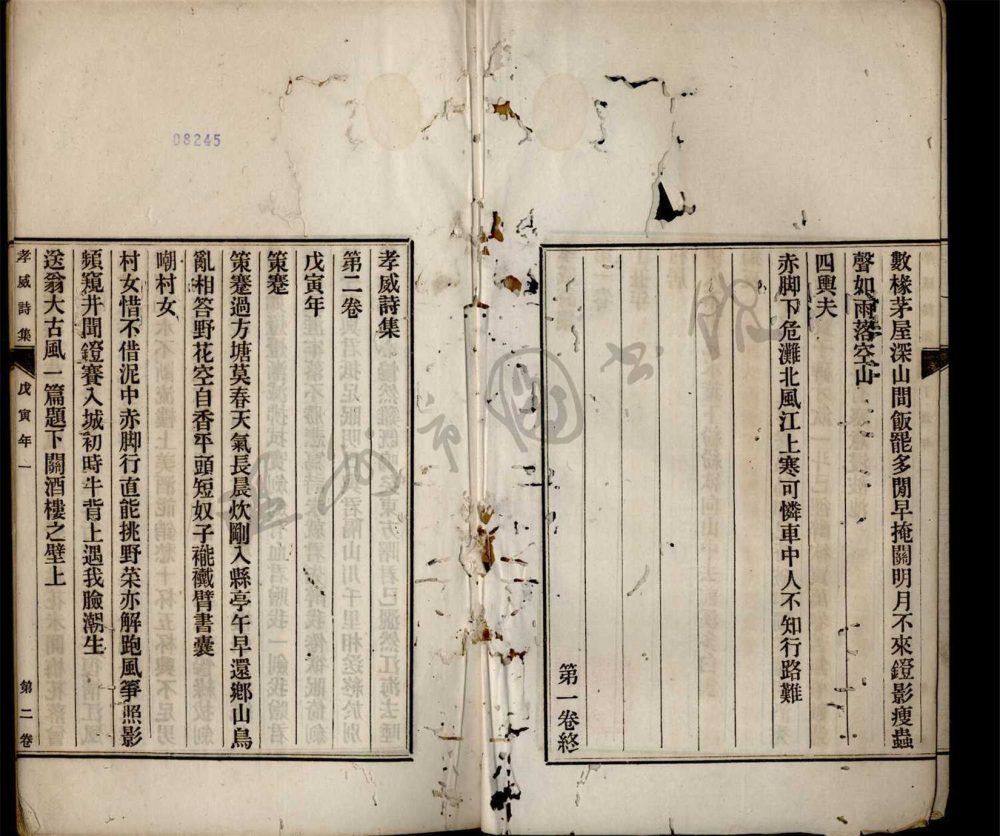 數椽茅屋深山間飯罷多閒早掩關明月不來鐙影瘦蟲
聲如雨落空山
四輿夫
赤脚下危灘北風江上寒可憐車中人不知行路難
第一卷終
孝威詩集
第二卷
戊寅年
策蹇
策蹇過方塘莫春天氣長晨炊剛入縣亭午早還鄉山鳥
亂相答野花空自香平頭短奴子䙰襶臂書囊
嘲村女
村女惜不借泥中赤脚行直能挑野菜亦解跑風箏照影
頻窺井聞鐙賽入城初時牛背上遇我臉潮生
送翁大古風一篇題下關酒樓之壁上
孝威詩集
戊寅年一
第二卷
08245
市圖書館